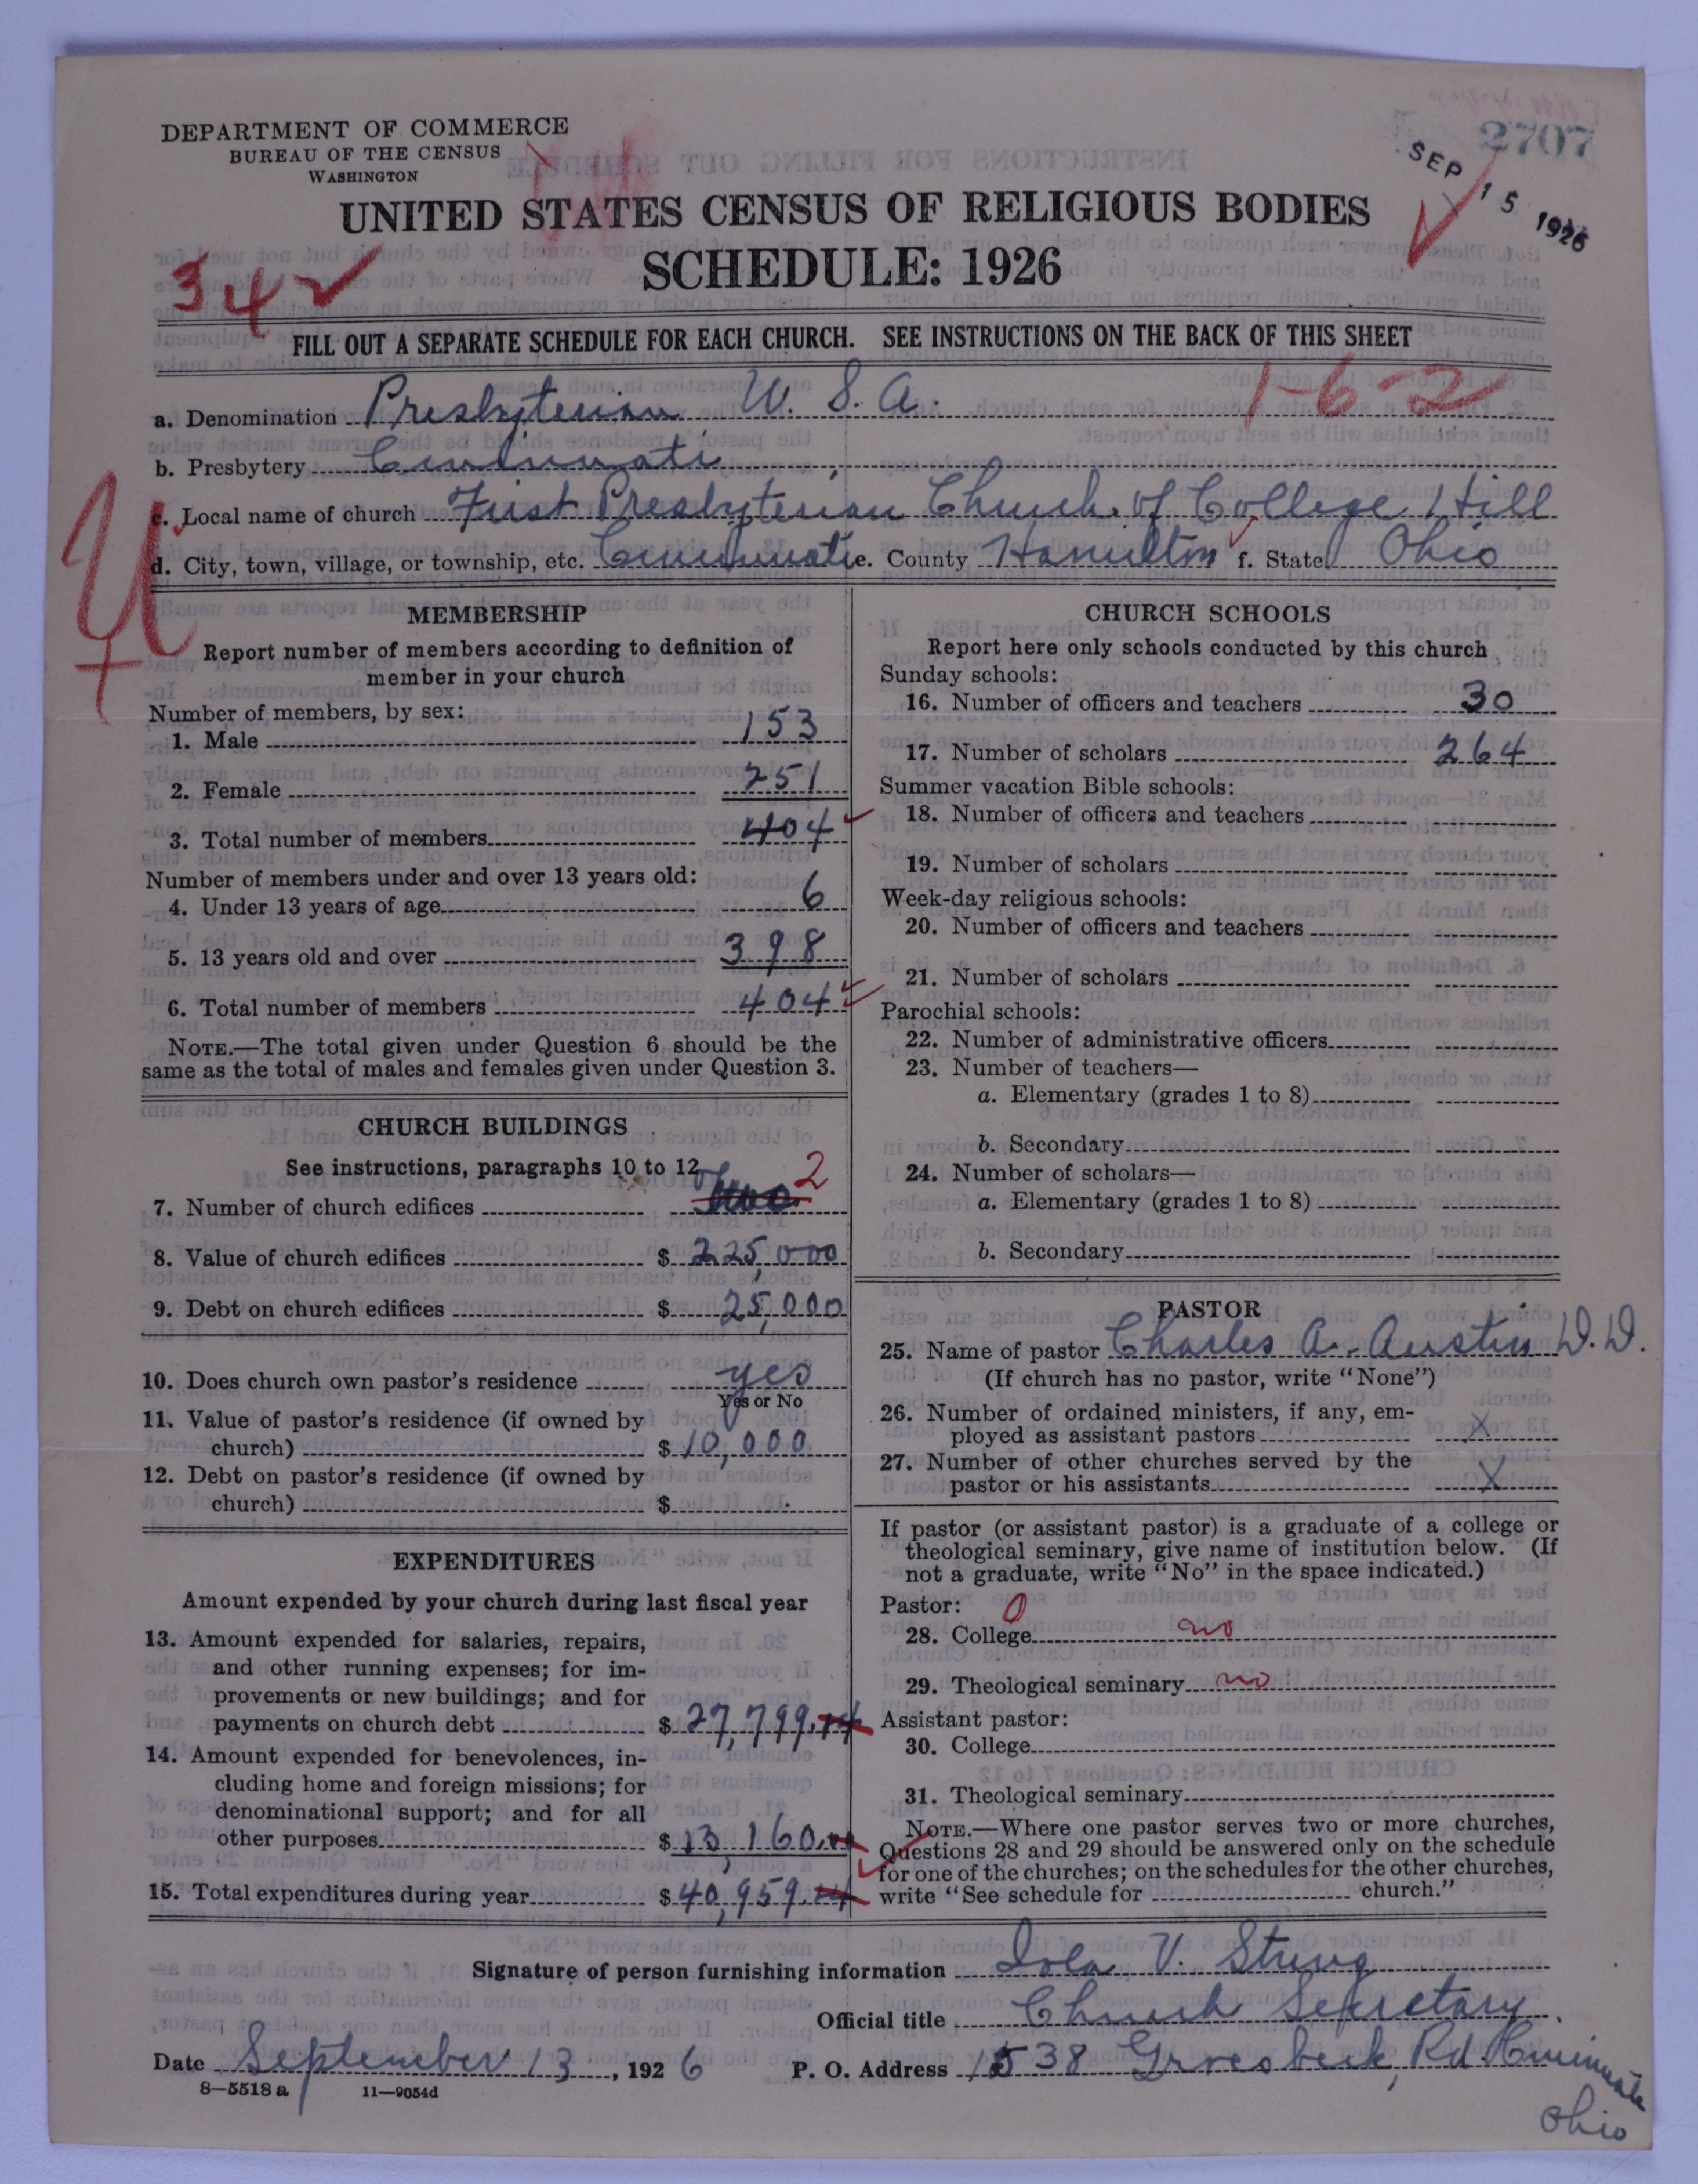 DEPARTMENT OF COMMERCE
BUREAU OF THE CENSUS
WASHINGTON
2707
SEP 15 1926
UNITED STATES CENSUS OF RELIGIOUS BODIES
SCHEDULE: 1926
34
FILL OUT A SEPARATE SCHEDULE FOR EACH CHURCH. SEE INSTRUCTIONS ON THE BACK OF THIS SHEET
1-6-2
a. Denomination Presbyterian U. S. A.
b. Presbytery Cincinnati
c. Local name of church First Presbyterian Church of College Hill
d. City, town, village, or township, etc. Cincinnati e. County Hamilton f. State Ohio
MEMBERSHIP
Report number of members according to definition of
member in your church
Number of members, by sex:
1. Male 153
2. Female 251
3. Total number of members 404
Number of members under and over 13 years old:
4. Under 13 years of age 6
5. 13 years old and over 398
6. Total number of members 404
NOTE.—The total given under Question 6 should be the
same as the total of males and females given under Question 3.
CHURCH BUILDINGS
See instructions, paragraphs 10 to 12
7. Number of church edifices two 2
8. Value of church edifices $ 225,000
9. Debt on church edifices $ 25,000
10. Does church own pastor's residence yes
Yes or No
11. Value of pastor's residence (if owned by
church) $ 10,000
12. Debt on pastor's residence (if owned by
church) $
EXPENDITURES
Amount expended by your church during last fiscal year
13. Amount expended for salaries, repairs,
and other running expenses; for im-
provements or new buildings; and for
payments on church debt $ 27,799.14
14. Amount expended for benevolences, in-
cluding home and foreign missions; for
denominational support; and for all
other purposes $ 13,160.00
15. Total expenditures during year $ 40,959.14
CHURCH SCHOOLS
Report here only schools conducted by this church
Sunday schools:
16. Number of officers and teachers 30
17. Number of scholars 264
Summer vacation Bible schools:
18. Number of officers and teachers
19. Number of scholars
Week-day religious schools:
20. Number of officers and teachers
21. Number of scholars
Parochial schools:
22. Number of administrative officers
23. Number of teachers—
a. Elementary (grades 1 to 8)
b. Secondary
24. Number of scholars—
a. Elementary (grades 1 to 8)
b. Secondary
PASTOR
25. Name of pastor Charles A. Austin D.D.
(If church has no pastor, write "None")
26. Number of ordained ministers, if any, em-
ployed as assistant pastors X
27. Number of other churches served by the
pastor or his assistants X
If pastor (or assistant pastor) is a graduate of a college or
theological seminary, give name of institution below. (If
not a graduate, write "No" in the space indicated.)
Pastor: 0
28. College no
29. Theological seminary no
Assistant pastor:
30. College
31. Theological seminary
NOTE.—Where one pastor serves two or more churches,
Questions 28 and 29 should be answered only on the schedule
for one of the churches; on the schedules for the other churches,
write "See schedule for church."
Signature of person furnishing information Iola V. Strung
Official title Church Secretary
Date September 13, 1926 P. O. Address 1538 Groesbeck Rd. Cincinnati
Ohio
8-5518 a 11-9054d